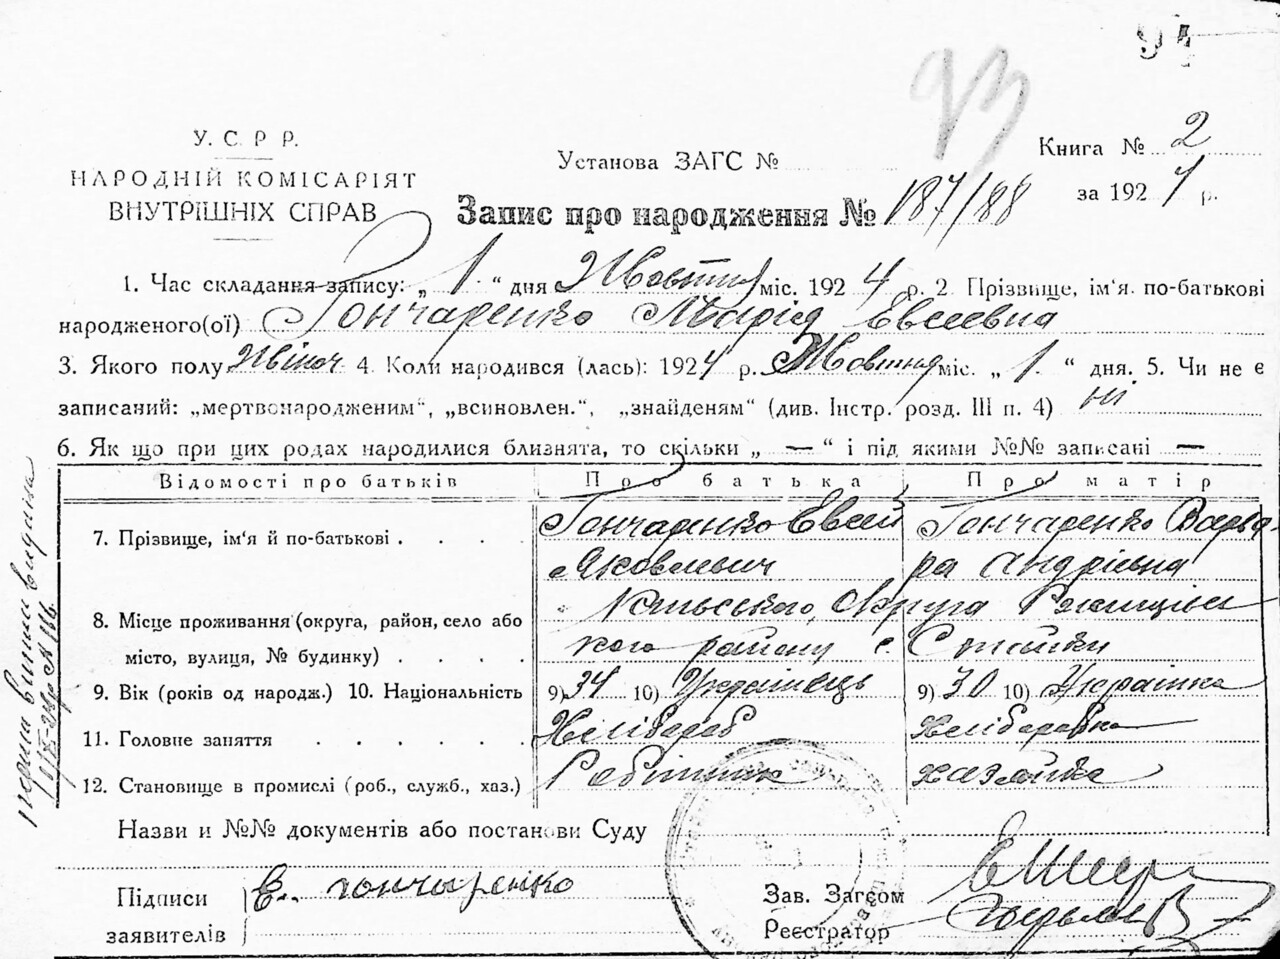 93
У. С. Р Р.
НАРОДНІЙ КОМІСАРІЯТ
ВНУТРІШНІХ СПРАВ
Установа ЗАГС №
Книга № 2
за 1924 р.
Запис про народження № 187/88
1. Час складання запису: „ 1. “ дня Жовтня міс. 1924 р. 2. Прізвище, ім'я по-батькові
народженого(ої) Гончаренко Марія Евсеевна
3. Якого полу Жіноч 4. Коли народився (лась): 1924 р. Жовтня міс. „ 1. “ дня. 5. Чи не є
записаний: „мертвонародженим“, „всиновлен.“, „знайденям“ (див. Інстр. розд. III п. 4) ні
6. Як що при цих родах народилися близнята, то скільки „ — “ і під якими №№ записані —
Відомості про батьків Про батька Про матір
7. Прізвище, ім'я й по-батькові . . . . Гончаренко Евсей Гончаренко Варва
Яковлевич ра Андрієвна
8. Місце проживання (округа, район, село або Округа
місто, вулиця, № будинку) . . . . кого району с. Стайки
9. Вік (років од народж.) 10. Національність 9) 34 10) Українець 9) 30 10) Українка
11. Головне заняття . . . . . . Хлібороб Хліборобка
12. Становище в промислі (роб., служб., хаз.) Робітник хазяйка
Назви и №№ документів або постанови Суду
Підписи Е. Гончаренко
заявителів
Зав. Загсом
Реєстратор